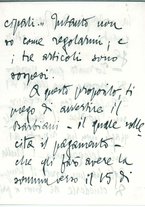 cipali... Intanto non
so come regolarmi, e
i tre articoli sono
sospesi.
A questo proposito, ti
prego di avvertire il
Barbiani – il quale solle-
cita il pagamento –
che gli farò avere la
somma verso il 15 di